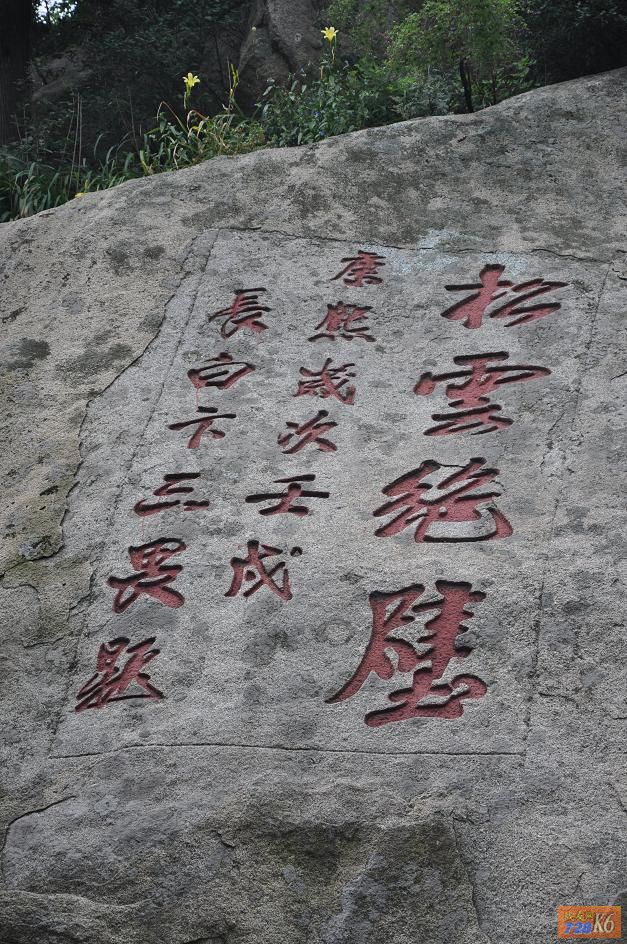 松雲絕壁
康熙歲次壬戌
長白卞三畏題
728K6